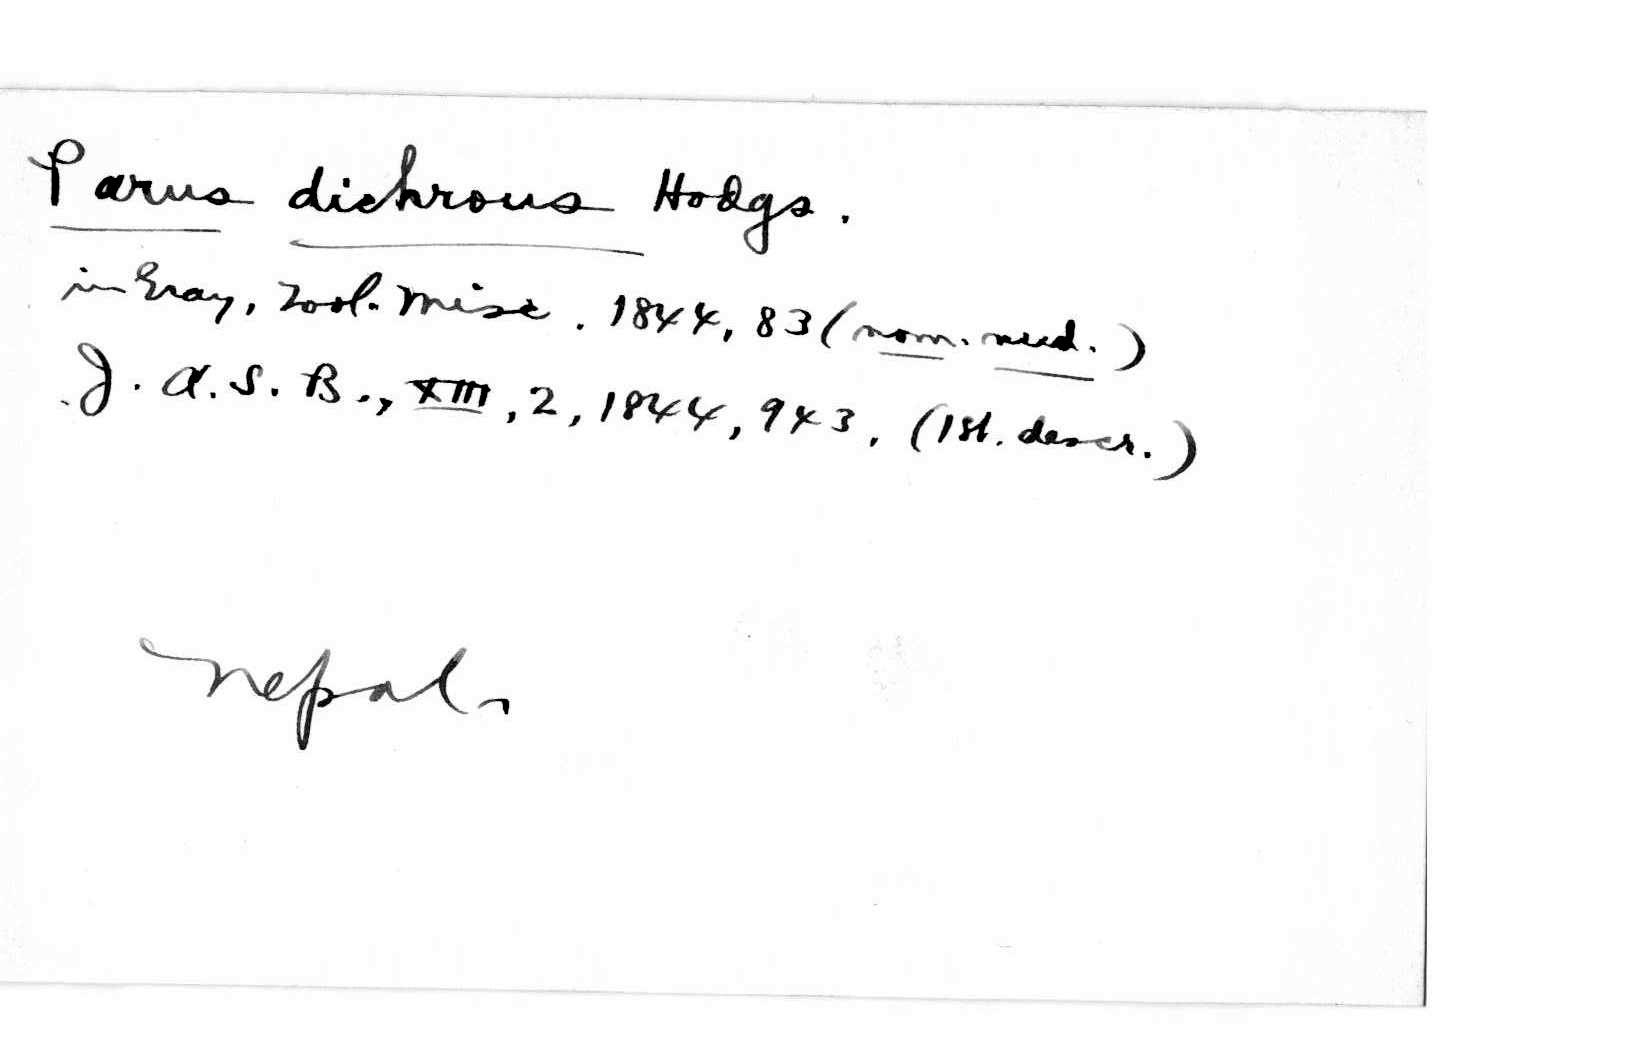 Parus dichrous Hodgs.
in Gray, Zool. Misc. 1844, 83 (nom. nud.)
J. A. S. B., XIII, 2, 1844, 943. (1st. descr.)
Nepal.